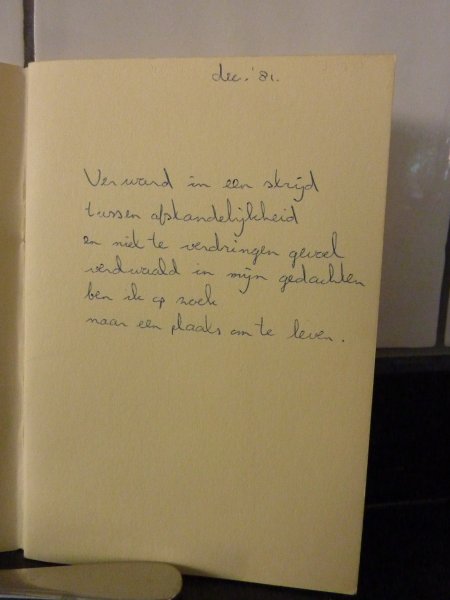 dec. '81.
Verward in een strijd
tussen afstandelijkheid
en niet te verdringen gevoel
verdwaald in mijn gedachten
ben ik op zoek
naar een plaats om te leven.